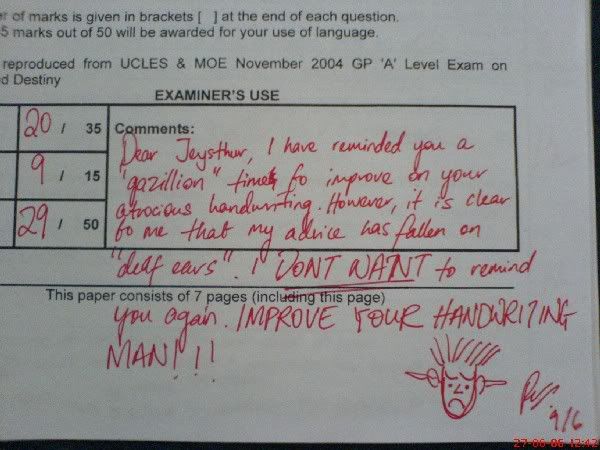 er of marks is given in brackets [ ] at the end of each question.
5 marks out of 50 will be awarded for your use of language.
reproduced from UCLES & MOE November 2004 GP 'A' Level Exam on
d Destiny
EXAMINER'S USE
20 / 35
9 / 15
29 / 50
Comments:
Dear Jeysthur, I have reminded you a
"gazillion" times to improve on your
atrocious handwriting. However, it is clear
to me that my advice has fallen on
"deaf ears". I DON'T WANT to remind
This paper consists of 7 pages (including this page)
you again. IMPROVE YOUR HANDWRITING
MAN!!!
9/6
27-06-06 12:42